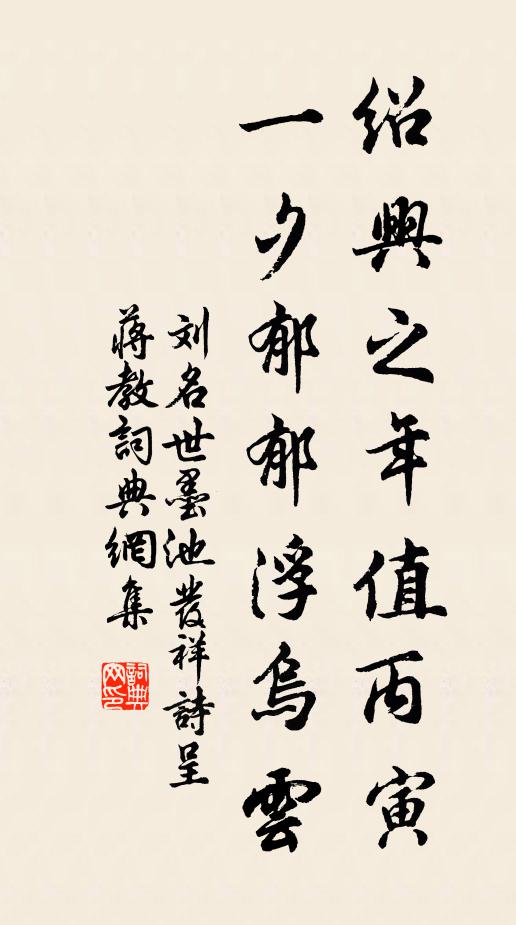 紹興之年值丙寅
一夕郁郁浮烏雲
刘名世墨池發祥詩呈
蔣教詞典網集
詞典網印